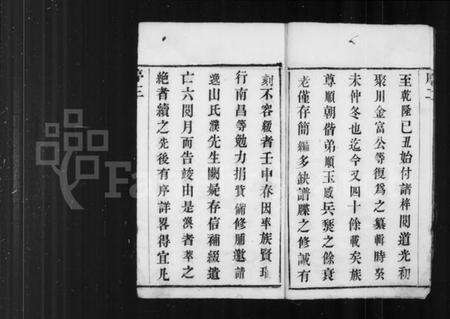 序二
至乾隆己丑始付諸梓閱道光初
聚川金富公等復爲之纂輯時癸
未仲冬也迄今又四十餘載矣族
尊順朝偕弟順玉慼兵燹之餘衰
老僅存簡編多缺譜牒之修誠有
刻不容緩者壬申春因率族賢瑾
行南昌等勉力捐貲備修脯邀請
逸山氏濮先生闕疑存信補綴遺
亡六閱月而告竣由是渙者萃之
絶者續之先後有序詳畧得宜凡
序三